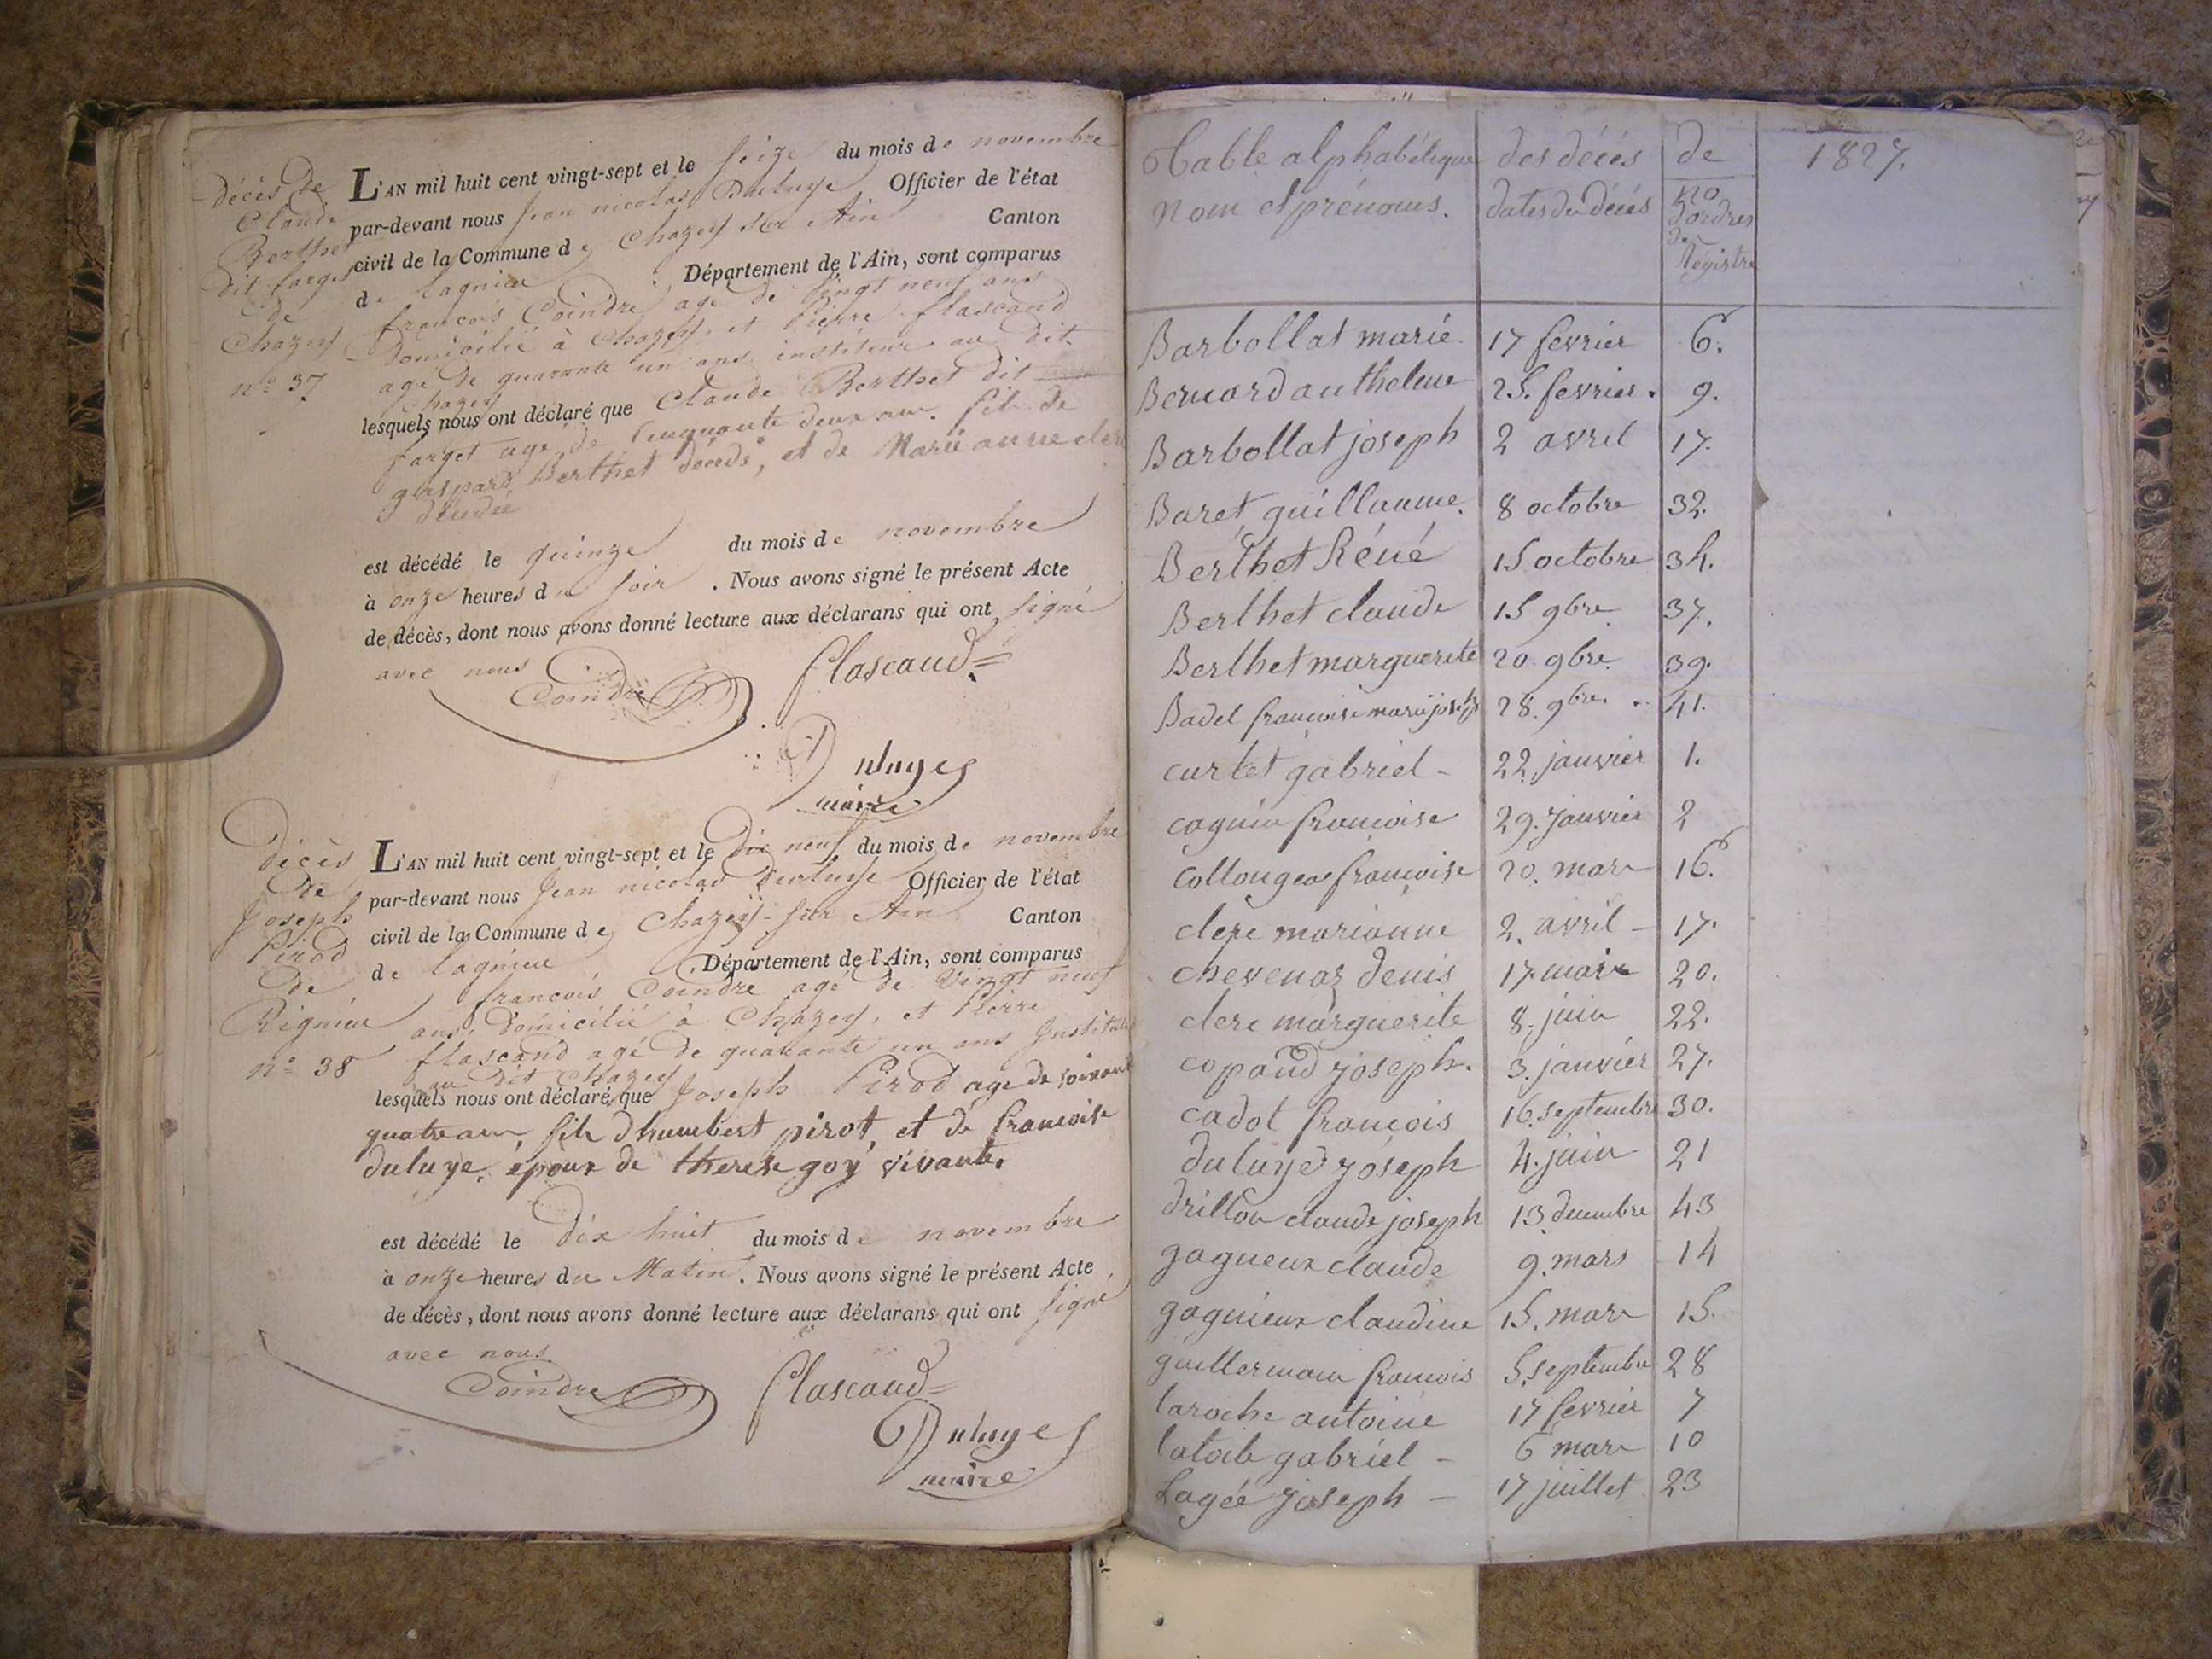 décès de
Claude
Berthet
dit farget
de
Chazey
n° 37
L'AN mil huit cent vingt-sept et le seize du mois de novembre
par-devant nous Jean nicolas Duluye Officier de l'état
civil de la Commune de Chazey sur Ain Canton
de lagnieu Département de l'Ain, sont comparus
francois Coindre age de vingt neuf ans
Domicilié à Chazey, et Pierre flascand
agé de quarante un ans instituteur au dit
Chazey
lesquels nous ont déclaré que Claude Berthet dit
farget agé de cinquante deux ans. fils de
gaspard Berthet décédé, et de Marie anne clere
décédée
est décédé le quinze du mois de novembre
à onze heures du soir . Nous avons signé le présent Acte
de décès, dont nous avons donné lecture aux déclarans qui ont signé
avec nous
Coindre flascaud
Duluye
maire
Décès
de
Joseph
Pirod
de
Rignieu
n° 38
L'AN mil huit cent vingt-sept et le dix neuf du mois de novembre
par-devant nous Jean nicolas Duluye Officier de l'état
civil de la Commune de Chazey sur Ain Canton
de lagnieu Département de l'Ain, sont comparus
francois Coindre agé de Vingt neuf
ans, Domicilié à Chazey, et Pierre
flascand agé de quarante un ans Institut
au dit Chazey
lesquels nous ont déclaré que Joseph Pirod age de soixante
quatre ans, fils d'humbert pirot, et de francoise
duluye, époux de therese goy vivante.
est décédé le Dix huit du mois de novembre
à onze heures du Matin. Nous avons signé le présent Acte
de décès, dont nous avons donné lecture aux déclarans qui ont signé
avec nous
Coindre flascaud
Duluye
maire
Table alphabétique des décés de 1827.
nom et prénoms. dates des décés no d'ordres de Registre
Barbollat marie 17 fevrier 6.
Bernard anthelme 25. fevrier. 9.
Barbollat joseph 2 avril 17.
Baret guillaume. 8 octobre 32.
Berthet Réné 15 octobre 34.
Berthet claude 15 9bre 37.
Berthet marguerite 20 9bre. 39.
Badel francoise marie joseph 28. 9bre. 41.
curtet gabriel - 22 janvier 1.
cagnin francoise 29. janvier 2
Collongeas francoise 20. mars 16.
clere marianne 2. avril - 17.
chevenaz denis 17 mai 20.
clere marguerite 8. juin 22.
copand joseph. 3. janvier 27.
cadot francois 16. septembre 30.
duluye joseph 4. juin 21
drillon claude joseph 13. decembre 43
gagneux claude 9. mars 14
gagnieux claudine 15. mars 15.
guillermain francois 5. septembre 28
laroche antoine 17 fevrier 7
gabriel - 6 mars 10
Lagée joseph - 17 juillet 23